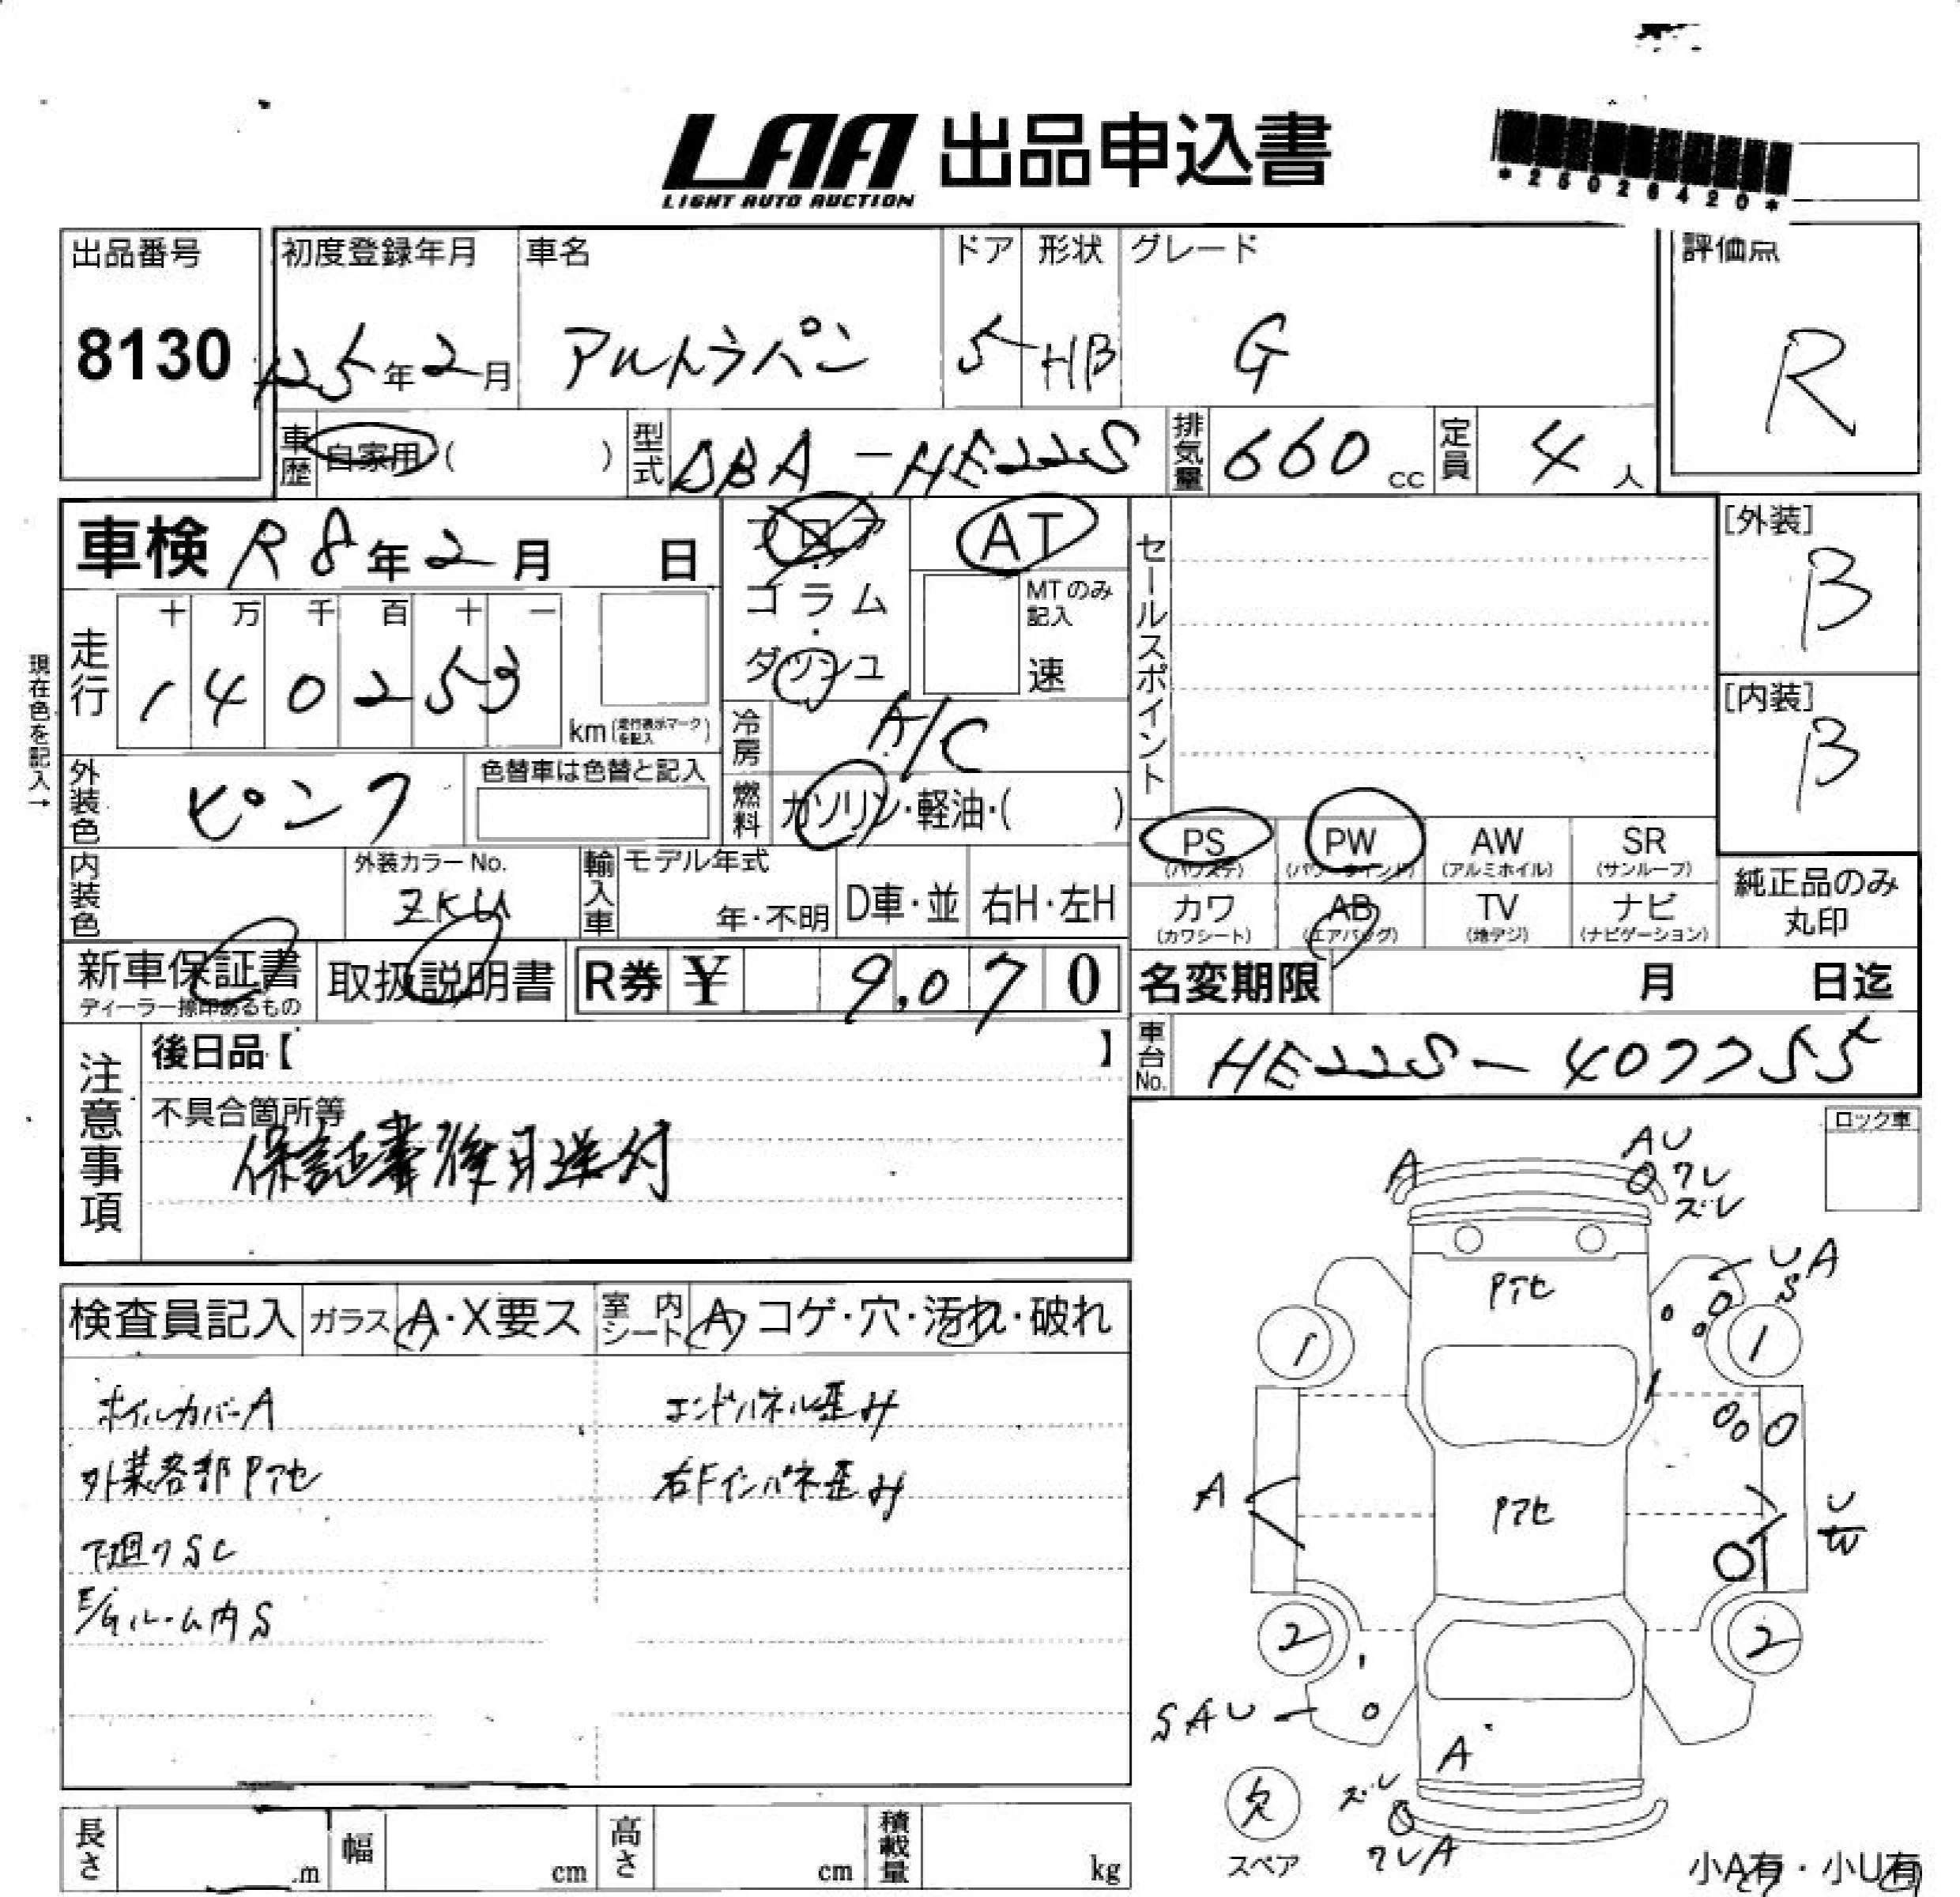 LAA 出品申込書
LIGHT AUTO AUCTION
*25026420*
出品番号
8130
初度登録年月
H25年2月
車名
アルトラパン
ドア
5
形状
HB
グレード
G
評価点
R
車歴 自家用 ( )
型式 DBA-HE22S
排気量 660 cc
定員 4 人
車検 R8年2月 日
フロア・コラム・ダッシュ
AT
MTのみ記入
速
セールスポイント
[外装]
B
[内装]
B
現在色を記入→
走行
十 万 千 百 十 一
1 4 0 2 5 3
km (走行表示マークを記入)
冷房 A/C
外装色 ピンク
色替車は色替と記入
燃料 ガソリン・軽油・( )
内装色
外装カラーNo.
ZKU
輸入車
モデル年式
年・不明
D車・並
右H・左H
PS
(パワステ)
PW
(パワーウインド)
AW
(アルミホイル)
SR
(サンルーフ)
カワ
(カワシート)
AB
(エアバッグ)
TV
(地デジ)
ナビ
(ナビゲーション)
純正品のみ
丸印
新車保証書
ディーラー捺印あるもの
取扱説明書
R券 ¥ 9,070
名変期限 月 日迄
車台No. HE22S-407755
注意事項
後日品【 】
不具合箇所等
保証書後日送付
ロック車
検査員記入
ガラス A・X要ス
室内シート A コゲ・穴・汚れ・破れ
ホイルカバーA
エンドパネル歪み
外装各部Pアセ
右Fインパネ歪み
下廻りSC
E/Gルーム内S
A
AU
ワレ
ズレ
UA
S
Pアセ
1
1
A
Pアセ
U
W
2
2
SAU
A
ズレ
ワレA
欠
スペア
小A有・小U有
長さ .m
幅 cm
高さ cm
積載量 kg